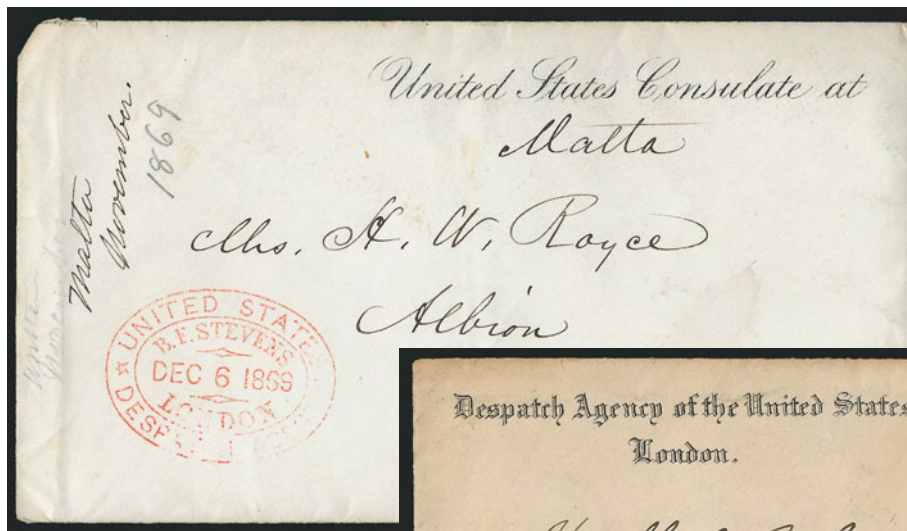 United States Consulate at
Malta
Malta
November.
1869
Mrs. H. W. Royce
Albion
UNITED STATES
B.F. STEVENS
DEC 6 1869
LONDON
DESPATCH
Despatch Agency of the United States
London.